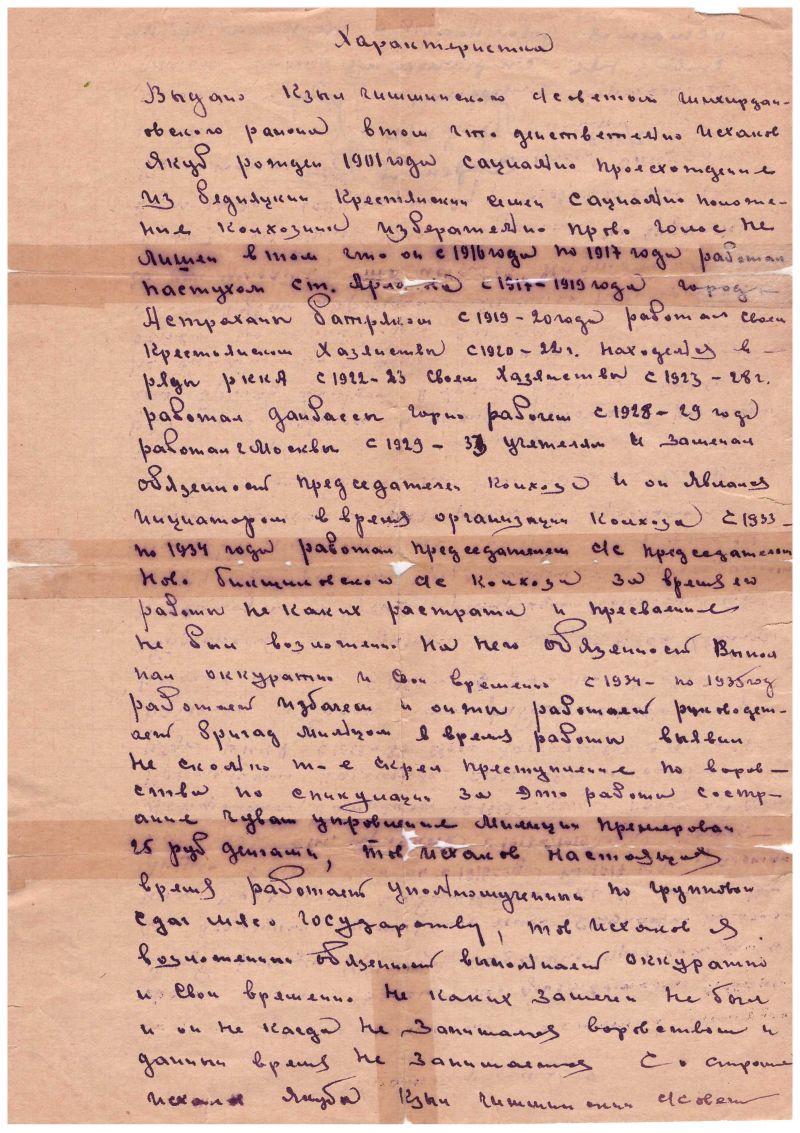 Характеристика
Выдано Кзыл чишшинского с/советом
овского района втом что действетелно Исхаков
Якуб рожден 1901 года социално проесхождение
из бедняцкий Крестянский семей социално положе-
ние Колхозник изберателно право голос не
лишен в том что он с 1916 года по 1917 года работал
пастухом ст. с 1917-1919 года город
Астрахани батряком с 1919-20 года работал своем
Крестянском Хазяйствы с 1920-22 г. находелся в
ряды РККА с 1922-23 своем Хазяйствы с 1923-28 г.
работал данбассы горно рабочем с 1928-29 года
работал г Москвы с 1929-33 учителям и замечал
обязенност председателем колхоза и он явился
инициатором в время организации колхоза с 1933-
по 1934 года работал председателем с/с председателем
Ново с/с колхоза за время его
работы не каких растрата и
не был возложенно на него обязенност выпол
нал оккуратно и Свои временно с 1934- по 1935 год
работает избачем и работает руководет-
ает бригад в время работы выявил
не сколко преступление по воров-
ства по спикуляции за это работы состр-
ание чуваш управление Милиции премирован
25 руб денгами, тов Исхаков настоящия
время работает уполномученный по групповой
сдач мясо государству, тов Исхаков Я.
возложенный обязенност выполняет оккуратно
и Свои временно не каких не был
и он не когда не занимался воровством и
данный время не занимается С о стороне
Якуба Кзыл чишшинский с/совет